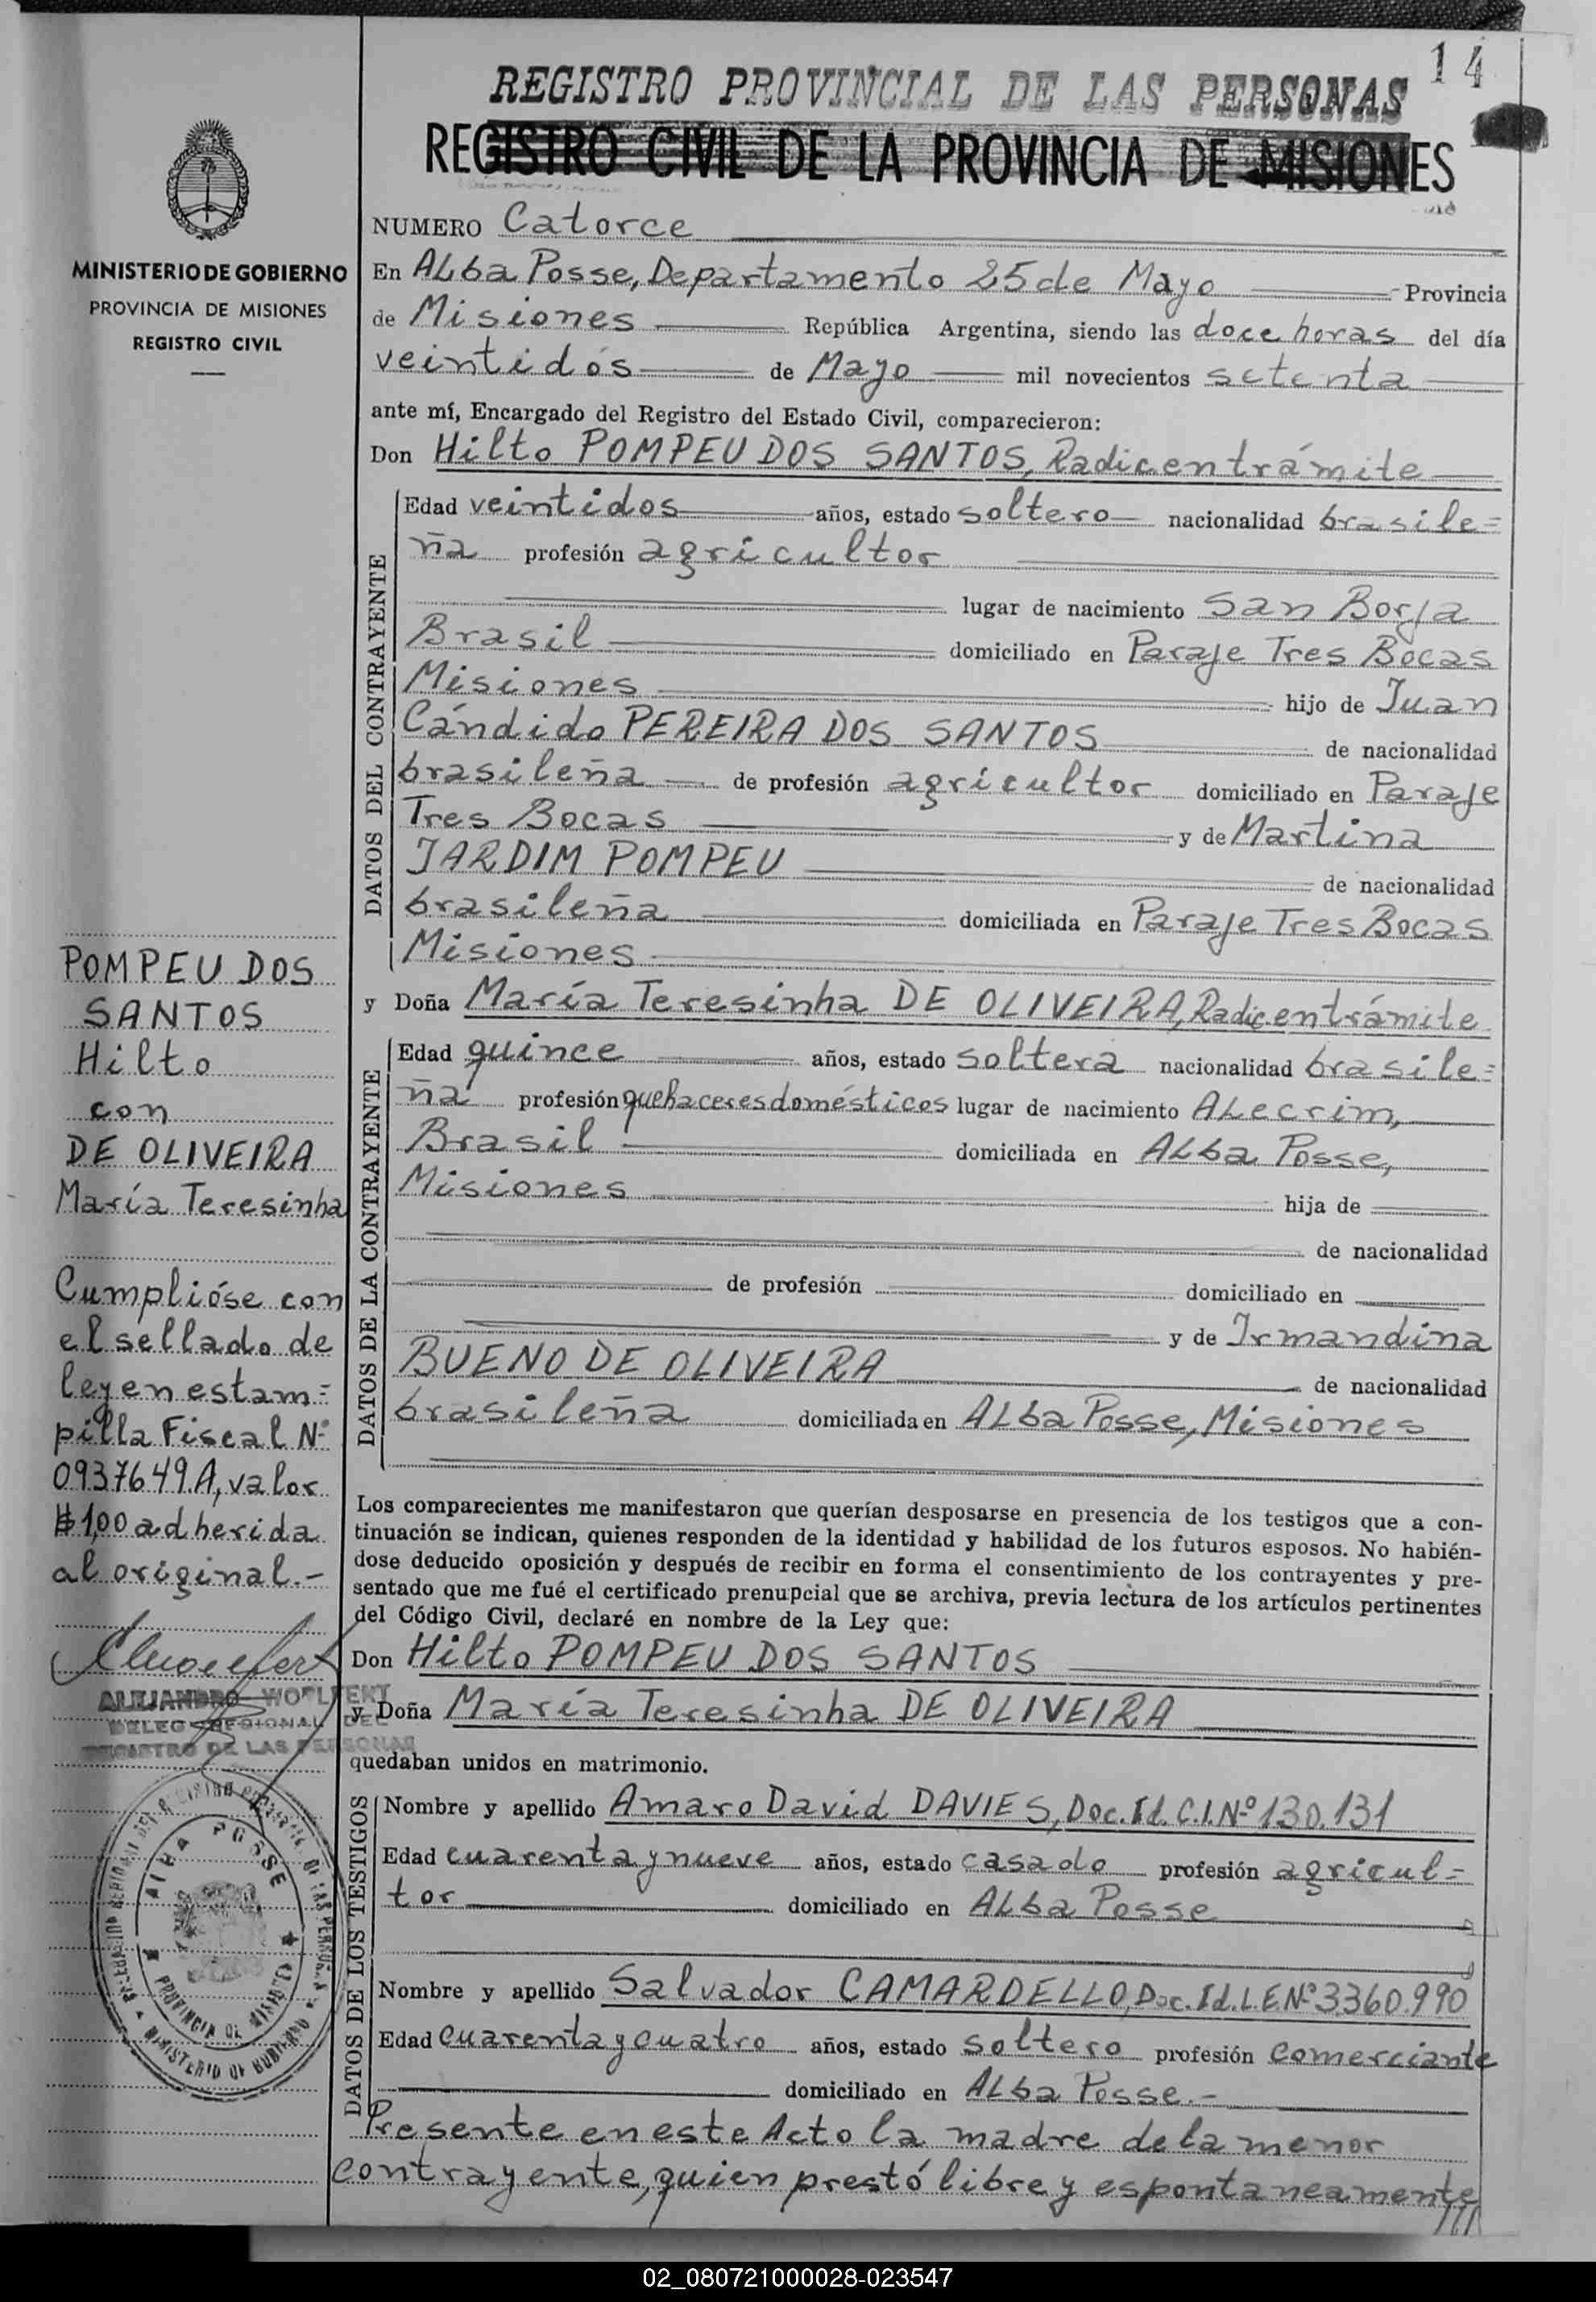 14
REGISTRO PROVINCIAL DE LAS PERSONAS
REGISTRO CIVIL DE LA PROVINCIA DE MISIONES
MINISTERIO DE GOBIERNO
PROVINCIA DE MISIONES
REGISTRO CIVIL
NUMERO Catorce
En Alba Posse, Departamento 25 de Mayo Provincia
de Misiones República Argentina, siendo las doce horas del día
veintidós de Mayo mil novecientos setenta
ante mí, Encargado del Registro del Estado Civil, comparecieron:
Don Hilto POMPEU DOS SANTOS, Radic. en trámite
DATOS DEL CONTRAYENTE
Edad veintidos años, estado soltero nacionalidad brasile=
ña profesión agricultor
lugar de nacimiento San Borja
Brasil domiciliado en Paraje Tres Bocas
Misiones hijo de Juan
Cándido PEREIRA DOS SANTOS de nacionalidad
brasileña de profesión agricultor domiciliado en Paraje
Tres Bocas y de Martina
JARDIM POMPEU de nacionalidad
brasileña domiciliada en Paraje Tres Bocas
Misiones
y Doña María Teresinha DE OLIVEIRA, Radic. en trámite
DATOS DE LA CONTRAYENTE
Edad quince años, estado soltera nacionalidad brasile=
ña profesión quehaceres domésticos lugar de nacimiento Alecrim,
Brasil domiciliada en Alba Posse,
Misiones hija de
de nacionalidad
de profesión domiciliado en
y de Irmandina
BUENO DE OLIVEIRA de nacionalidad
brasileña domiciliada en Alba Posse, Misiones
Los comparecientes me manifestaron que querían desposarse en presencia de los testigos que a con-
tinuación se indican, quienes responden de la identidad y habilidad de los futuros esposos. No habién-
dose deducido oposición y después de recibir en forma el consentimiento de los contrayentes y pre-
sentado que me fué el certificado prenupcial que se archiva, previa lectura de los artículos pertinentes
del Código Civil, declaré en nombre de la Ley que:
Don Hilto POMPEU DOS SANTOS
y Doña María Teresinha DE OLIVEIRA
quedaban unidos en matrimonio.
DATOS DE LOS TESTIGOS
Nombre y apellido Amaro David DAVIES, Doc. Id. C.I. Nº 130.131
Edad cuarenta y nueve años, estado casado profesión agricul=
tor domiciliado en Alba Posse
Nombre y apellido Salvador CAMARDELLO, Doc. Id. L.E. Nº 3.360.990
Edad cuarenta y cuatro años, estado soltero profesión comerciante
domiciliado en Alba Posse.-
Presente en este Acto la madre de la menor
contrayente, quien prestó libre y espontaneamente
///
POMPEU DOS
SANTOS
Hilto
con
DE OLIVEIRA
María Teresinha
Cumplióse con
el sellado de
ley en estam=
pilla Fiscal Nº
0937649.A, valor
$ 1,00 adherida
al original.-
ALEJANDRO
DELEG REGIONAL DEL
REGISTRO DE LAS PERSONAS
ALBA POSSE
PROVINCIA DE MISIONES
MINISTERIO DE GOBIERNO
02_080721000028-023547